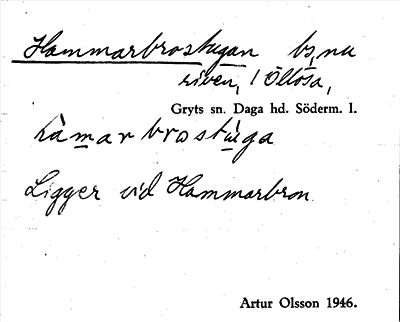 Hammarbrostugan bs, nu
riven, i Öllösa,
Gryts sn. Daga hd. Söderm. l.
hàmarbrostùga
Ligger vid Hammarbron
Artur Olsson 1946.